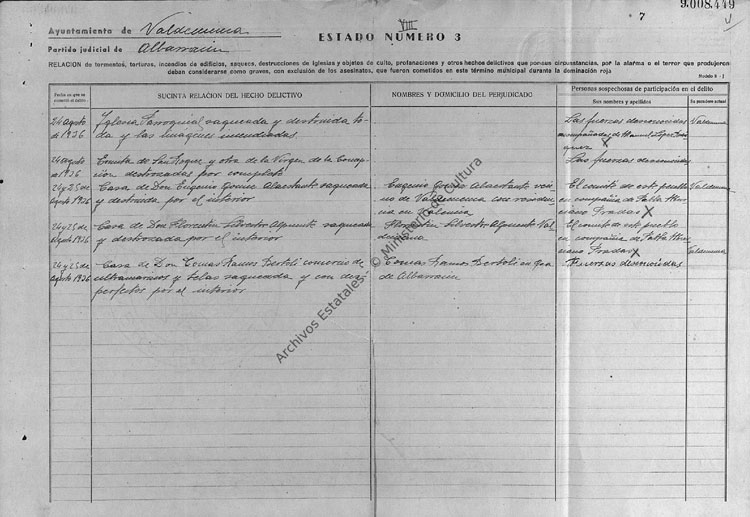 9.008.449
7
VIII
Ayuntamiento de Valdecuenca
Partido judicial de Albarracin
ESTADO NUMERO 3
RELACION de tormentos, torturas, incendios de edificios, saqueos, destrucciones de Iglesias y objetos de culto, profanaciones y otros hechos delictivos que por sus circunstancias, por la alarma o el terror que produjeron
deban considerarse como graves, con exclusión de los asesinatos, que fueron cometidos en este término municipal durante la dominación roja
Fecha en que se cometió el delito
SUCINTA RELACION DEL HECHO DELICTIVO
NOMBRES Y DOMICILIO DEL PERJUDICADO
Personas sospechosas de participación en el delito
Sus nombres y apellidos
Su paradero actual
24 agosto de 1936
Iglesia Parroquial saqueada y destruida to-
da y las Imagenes incendiadas
Las fuerzas desconocidas
acompañadas de Manuel Lopez
Valdecuenca
24 agosto de 1936
Ermita de San Roque y otra de la Virgen de la Concep-
cion destrozadas por completo
Las fuerzas desconocidas
24 y 25 de Agosto 1936
Casa de Don Eugenio Gomez Alacetante saqueada
y destruida por el interior
Eugenio Gomez Alacetante veci-
no de Valdecuenca con residen-
cia en Valencia
El comite de este pueblo
en compañia de Pablo
Pradas X
Valdecuenca
24 y 25 de Agosto 1936
Casa de Don Florentin Silvestre Alpuente saqueada
y destrozada por el interior
Florentin Silvestre Alpuente Val-
decuenca
El comite de este pueblo
en compañia de Pablo
Pradas X
Valdecuenca
24 y 25 de Agosto 1936
Casa de Don Tomas Ramos Bertoli comercio de
ultramarinos y telas saqueada y con des-
perfectos por el interior
Tomas Ramos Bertoli en
de Albarracin
Fuerzas desconocidas
Archivos Estatales © Ministerio de Cultura